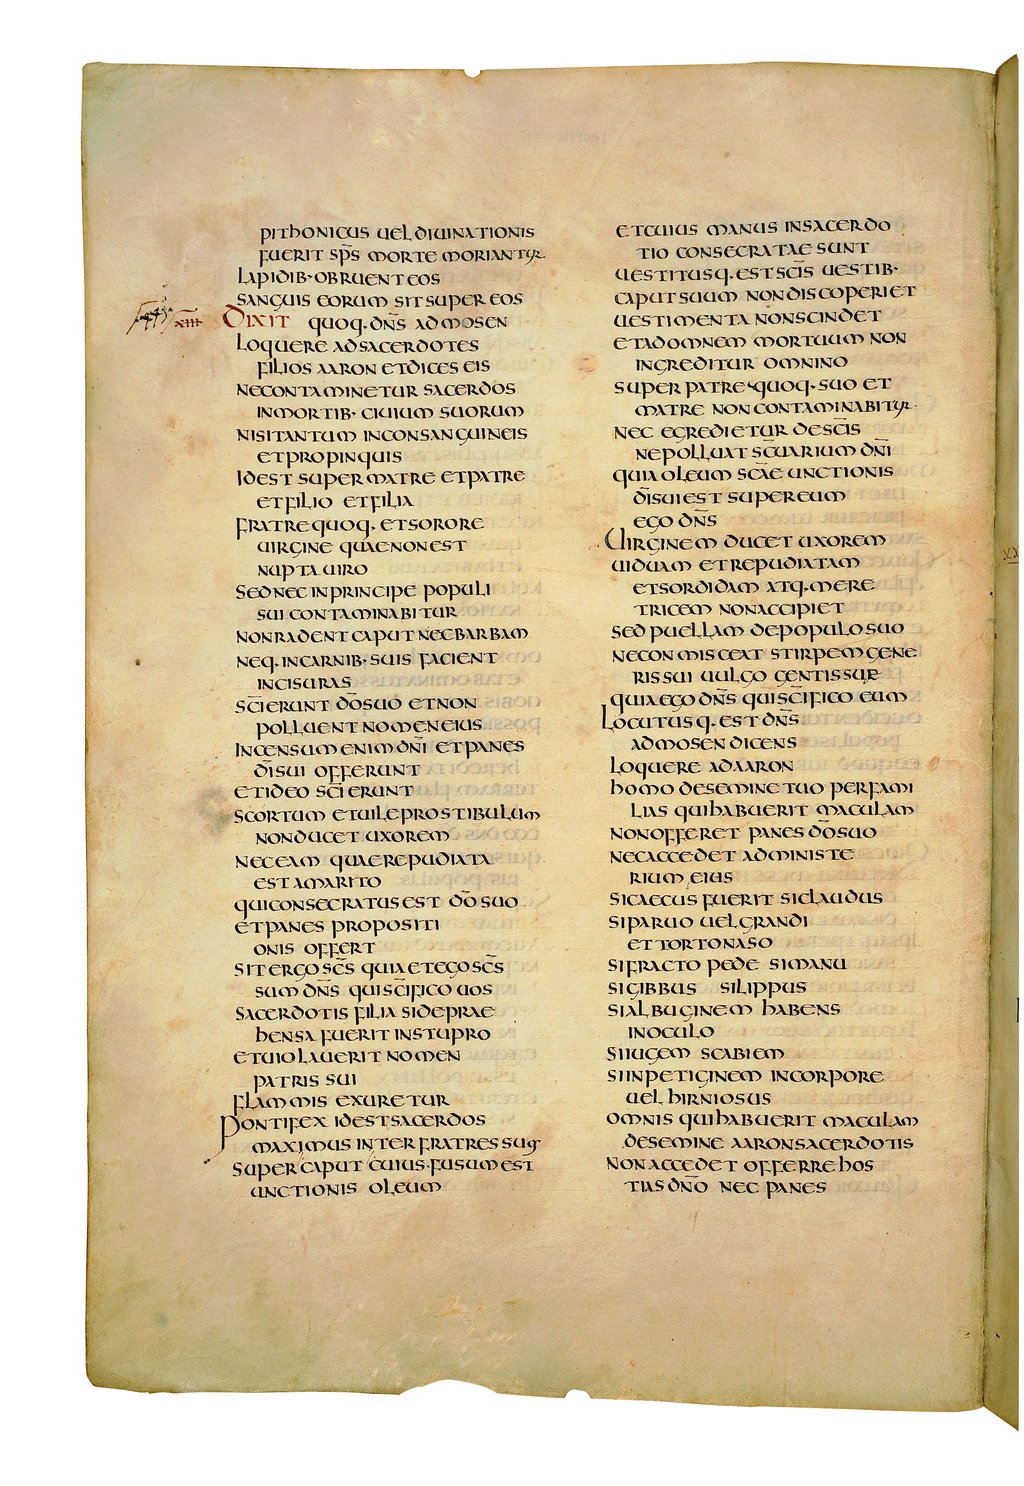 pithonicus uel diuinationis
fuerit sp̄s morte moriantur
lapidib· obruent eos
sanguis eorum sit super eos
xiii
Dixit quoq· dn̄s ad mosen
loquere ad sacerdotes
filios aaron et dices eis
ne contaminetur sacerdos
in mortib· ciuium suorum
nisi tantum in consanguineis
et propinquis
id est super matre et patre
et filio et filia
fratre quoq· et sorore
uirgine quae non est
nupta uiro
sed nec in principe populi
sui contaminabitur
non radent caput nec barbam
neq· in carnib· suis facient
incisuras
sc̄i erunt dō suo et non
polluent nomen eius
incensum enim dn̄i et panes
dī sui offerunt
et ideo sc̄i erunt
scortum et uile prostibulum
non ducet uxorem
nec eam quae repudiata
est a marito
qui consecratus est dō suo
et panes propositi
onis offert
sit ergo sc̄s quia et ego sc̄s
sum dn̄s qui sc̄ifico uos
sacerdotis filia si deprae
hensa fuerit in stupro
et uiolauerit nomen
patris sui
flammis exuretur
Pontifex id est sacerdos
maximus inter fratres suos
super caput cuius· fusum est
unctionis oleum
et cuius manus in sacerdo
tio consecratae sunt
uestitusq· est sc̄is uestib·
caput suum non discoperiet
uestimenta non scindet
et ad omnem mortuum non
ingreditur omnino
super patre quoq· suo et
matre non contaminabitur
nec egredietur de sc̄is
ne polluat sc̄uarium dn̄i
quia oleum sc̄ae unctionis
dī sui est super eum
ego dn̄s
Uirginem ducet uxorem
uiduam et repudiatam
et sordidam atq· mere
tricem non accipiet
sed puellam de populo suo
ne conmisceat stirpem gene
ris sui uulgo gentis suae
quia ego dn̄s qui sc̄ifico eum
Locutusq· est dn̄s
ad mosen dicens
loquere ad aaron
homo de semine tuo per fami
lias qui habuerit maculam
non offeret panes dō suo
nec accedet ad ministe
rium eius
si caecus fuerit si claudus
si paruo uel grandi
et torto naso
si fracto pede si manu
si gibbus si lippus
si albuginem habens
in oculo
si iugem scabiem
si inpetiginem in corpore
uel hirniosus
omnis qui habuerit maculam
de semine aaron sacerdotis
non accedet offerre hos
tias dn̄o nec panes